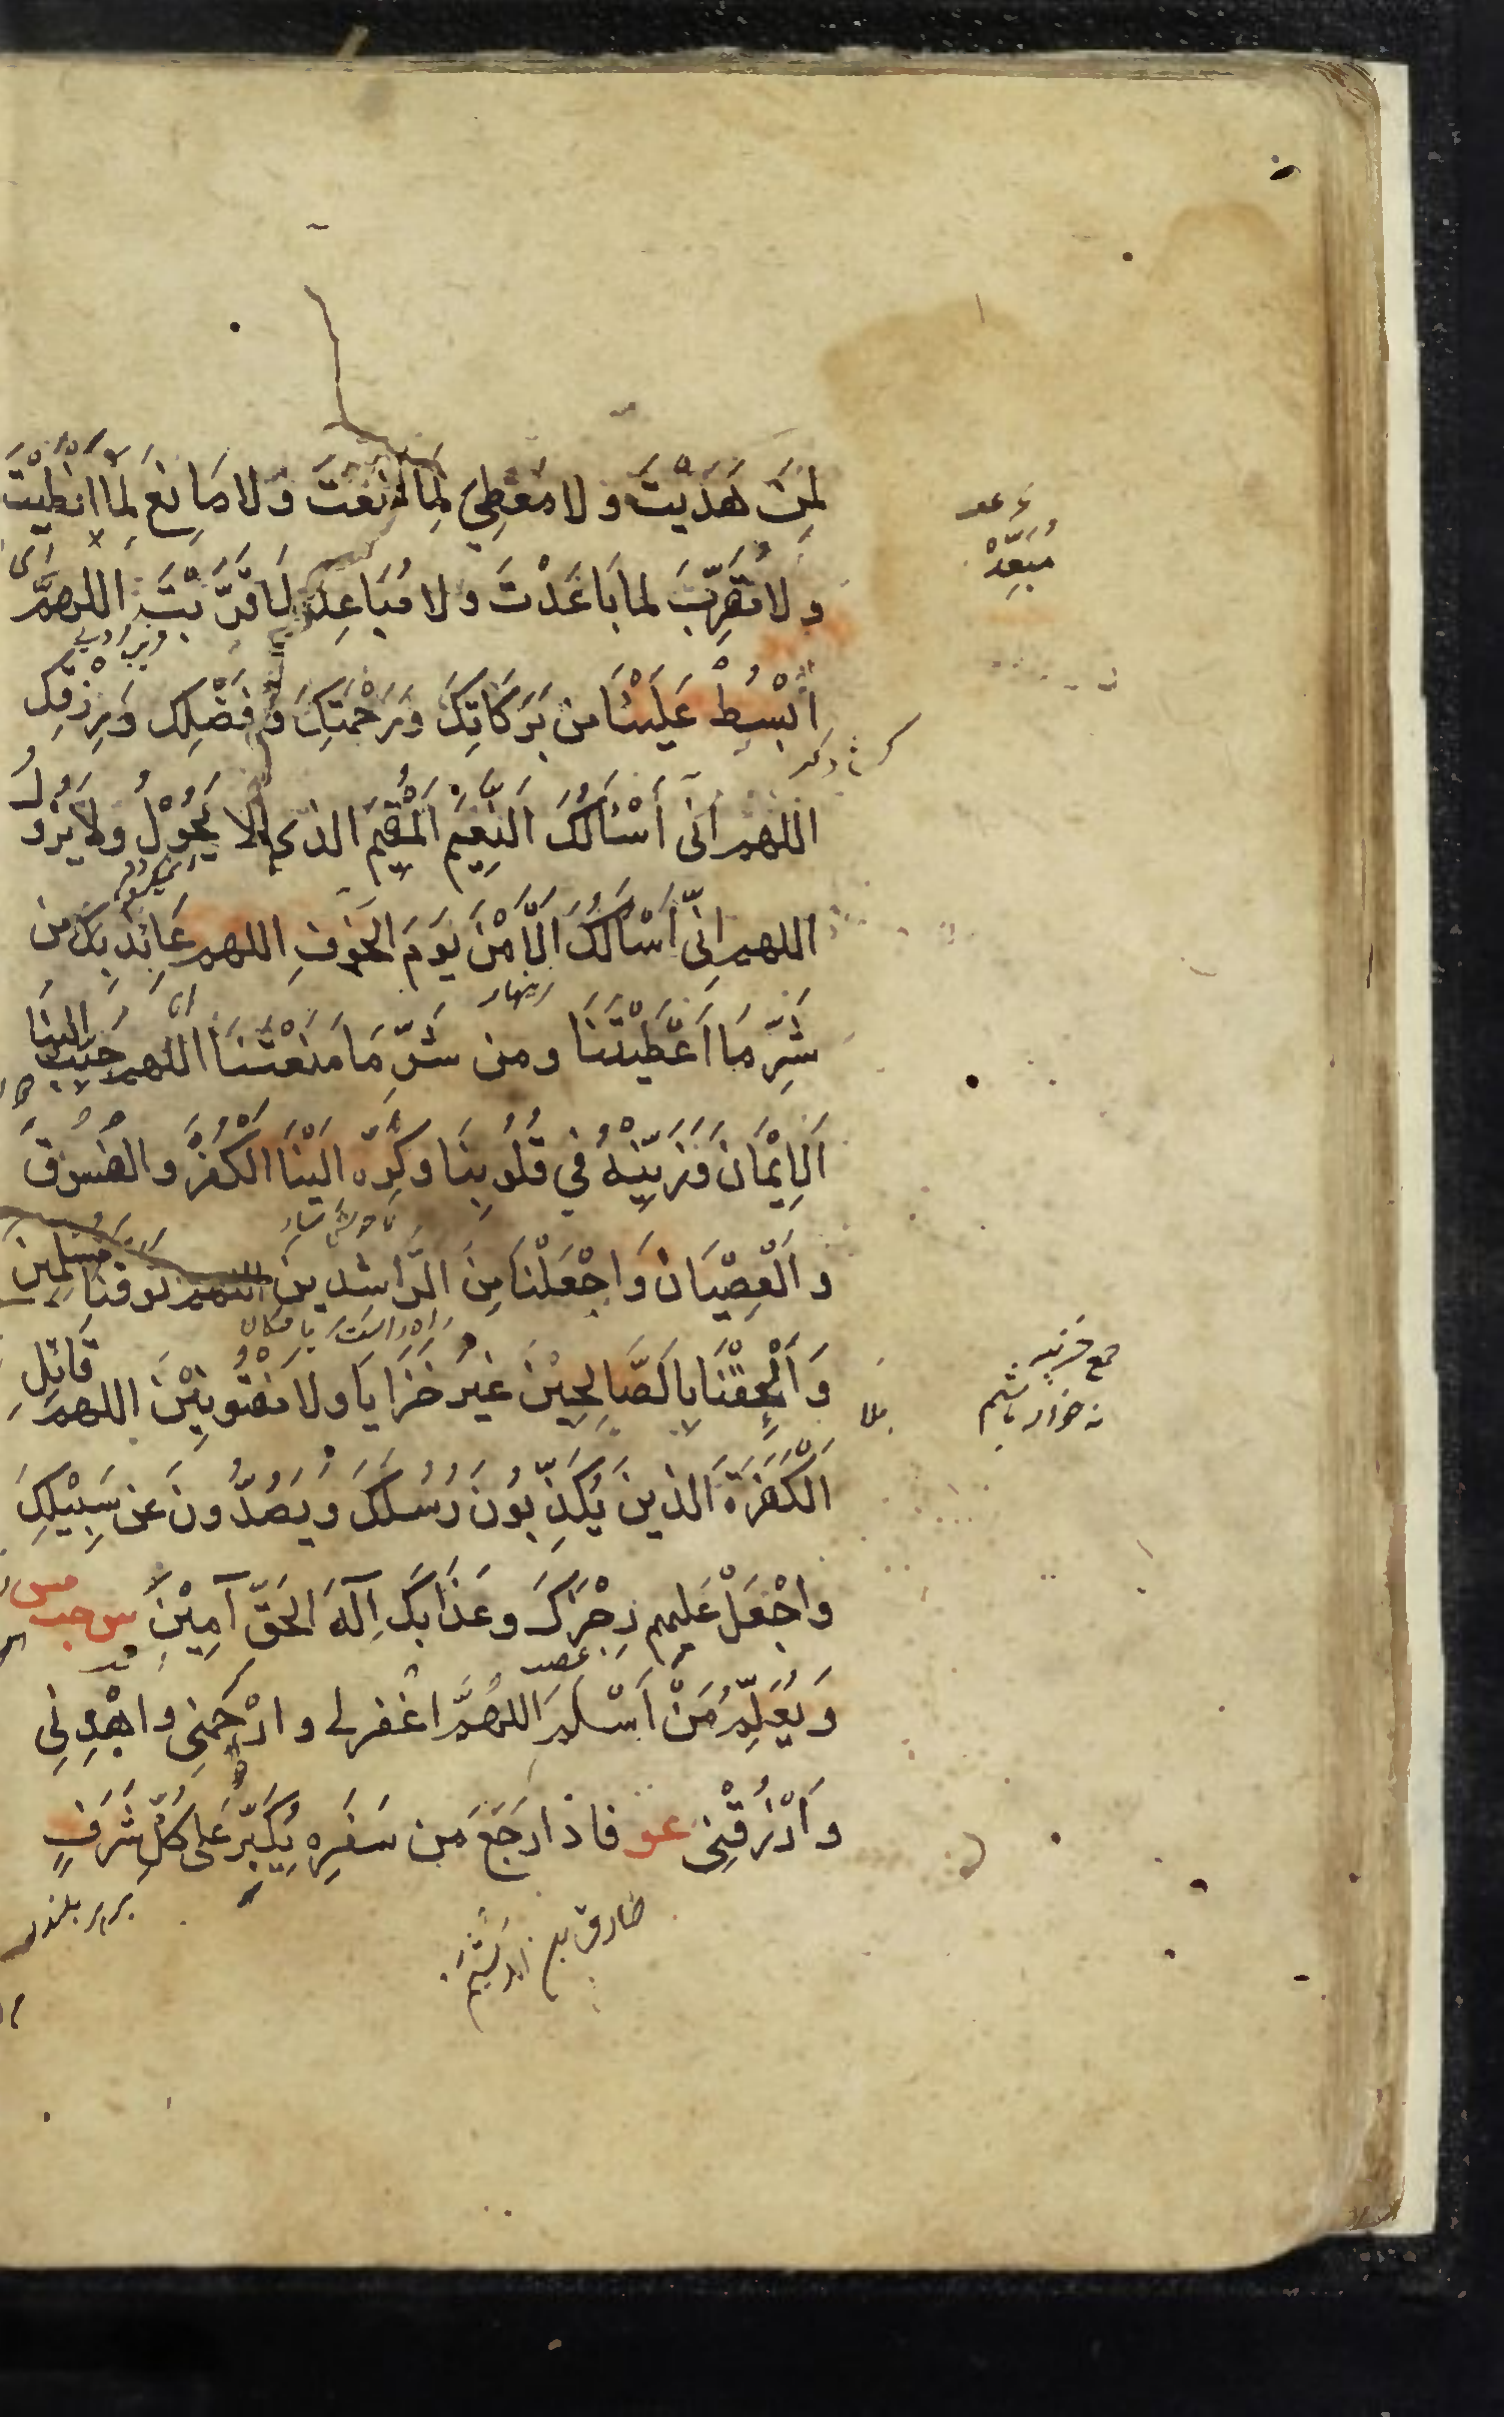 لِمَنْ هَدَيْتَ وَلا مُعْطِيَ لِمَا مَنَعْتَ وَلا مَانِعَ لِمَا اَعْطَيْتَ
وَلا مُقَرِّبَ لِمَا بَاعَدْتَ وَلا مُبَاعِدَ لِمَا قَرَّبْتَ اللهم
مُبَعِّدَ
اُبْسُطْ عَلَيْنَا من بَرَكَاتِكَ وَرَحْمَتِكَ وَفَضْلِكَ وَرِزْقِكَ
اللهم اني أَسْئَلُكَ النَّعِيْمَ الْمُقِيْمَ الذي لا يَحُوْلُ وَلا يَزُولُ
اللهم اِنّي اَسْأَلُكَ الْاَمْنَ يَوْمَ الخَوْفِ اللهم عَائِذٌ بِكَ من
زينهار
شَرِّ مَا اَعْطَيْتَنَا ومن شَرِّ مَا مَنَعْتَنَا اللهم حَبِّبْ اِلَيْنَا
اَلْاِيْمَانَ وَزَيِّنْهُ فِي قُلُوبِنَا وَكَرِّه اِلَيْنَا الْكُفْرَ وَالفُسُوْقَ
وَالْعِصْيَانَ وَاجْعَلْنَا مِنَ الرَّاشِدِينَ اللهم تَوَفَّنَا مُسْلِمِينَ
راه راست يافتكان
وَاَلْحِقْنَا بِالصَّالِحِيْنَ غَيْرَ خَزَايَا وَلا مَفْتُونِيْنَ اللهم قَاتِلِ
نه خوار باشيم
اَلْكَفَرَةَ الذِينَ يُكَذِّبُونَ رُسُلَكَ وَيَصُدُّونَ عَن سَبِيْلِكَ
وَاجْعَلْ عَلَيهم رِجْزَكَ وَعَذَابَكَ اِلَهَ الحَقِّ آمِيْنَ س حب مس
وَيُعَلِّمُ مَنْ اَسْلَمَ اللهُمَّ اغفر لي وَارْحَمْنِي وَاهْدِنِي
وَارْزُقْنِي عو فاذا رَجَعَ مِن سَفَرِهِ يُكَبِّرُ عَلى كُلِّ شَرَفٍ
بر هر بلندي